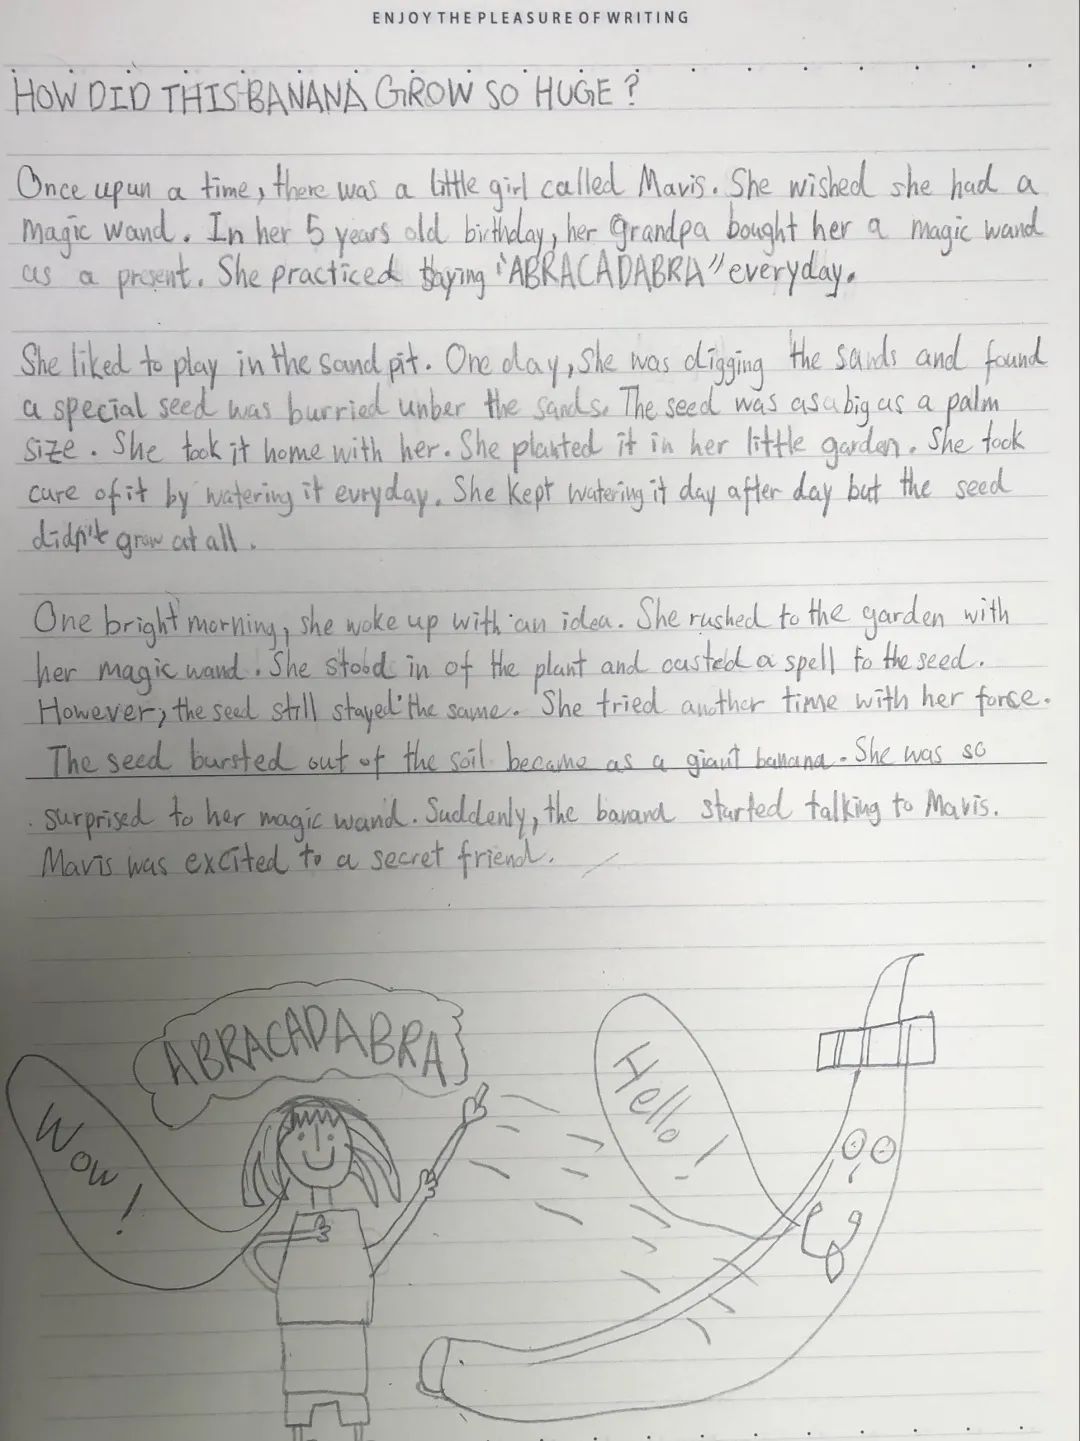 ENJOY THE PLEASURE OF WRITING
HOW DID THIS BANANA GROW SO HUGE?
Once upun a time, there was a little girl called Mavis. She wished she had a
magic wand. In her 5 years old birthday, her Grandpa bought her a magic wand
as a present. She practiced saying "ABRACADABRA" everyday.
She liked to play in the sand pit. One day, She was digging the sands and found
a special seed was burried unber the sands. The seed was as a big as a palm
size. She took it home with her. She planted it in her little garden. She took
care of it by watering it evryday. She kept watering it day after day but the seed
didn't grow at all.
One bright morning, she woke up with an idea. She rushed to the garden with
her magic wand. She stood in of the plant and casted a spell to the seed.
However, the seed still stayed the same. She tried another time with her force.
The seed bursted out of the soil became as a giant banana. She was so
surprised to her magic wand. Suddenly, the banana started talking to Mavis.
Mavis was excited to a secret friend.
ABRACADABRA
Wow!
Hello!